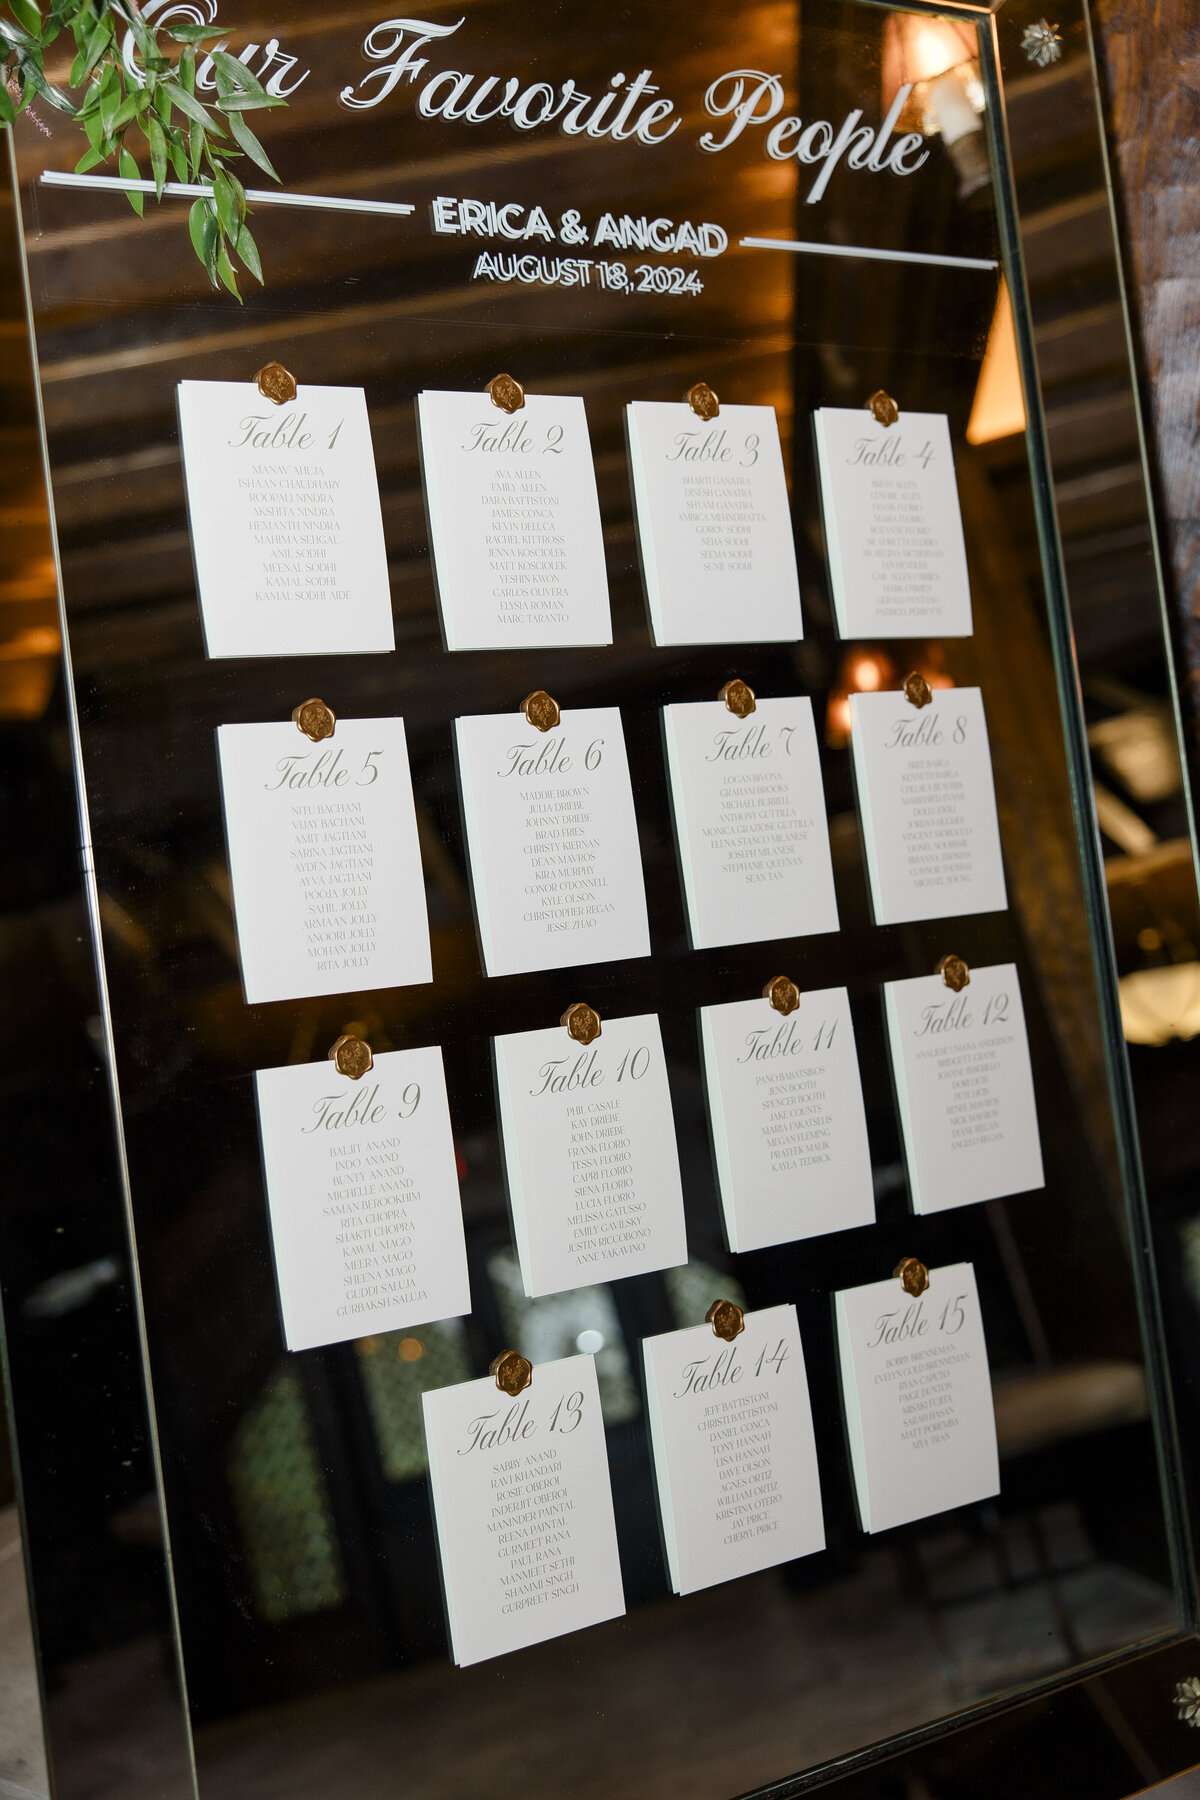 Our Favorite People
ERICA & ANGAD
AUGUST 18, 2024
Table 1
MANAV AHUJA
ISHAAN CHAUDHARY
ROOPALI NINDRA
AKSHITA NINDRA
HEMANTH NINDRA
MAHIMA SEHGAL
ANIL SODHI
MEENAL SODHI
KAMAL SODHI
KAMAL SODHI AIDE
Table 2
AVA ALLEN
EMILY ALLEN
DARA BATTISTONI
JAMES CONCA
KEVIN DELUCA
RACHEL KITTROSS
JENNA KOSCIOLEK
MATT KOSCIOLEK
YESHIN KWON
CARLOS OLIVERA
ELYSIA ROMAN
MARC TARANTO
Table 3
BHARTI GANATRA
DINESH GANATRA
SHYAM GANATRA
AMBICA MEHNDIRATTA
GOROV SODHI
NEHA SODHI
SEEMA SODHI
SUNIL SODHI
Table 4
BRIAN ALLEN
LENORE ALLEN
FRANK FLORIO
MARIA FLORIO
ROZANNE FLORIO
SR. LORETTA FLORIO
SR. REGINA
IAN HENDLER
GAIL ALLEN O'BRIEN
MARK O'BRIEN
GERALD PANTANO
PATRICIA
Table 5
NITU BACHANI
VIJAY BACHANI
AMIT JAGTIANI
SARINA JAGTIANI
AYDEN JAGTIANI
AYVA JAGTIANI
POOJA JOLLY
SAHIL JOLLY
ARMAAN JOLLY
ANOORI JOLLY
MOHAN JOLLY
RITA JOLLY
Table 6
MADDIE BROWN
JULIA DRIEBE
JOHNNY DRIEBE
BRAD FRIES
CHRISTY KIERNAN
DEAN MAVROS
KIRA MURPHY
CONOR O'DONNELL
KYLE OLSON
CHRISTOPHER REGAN
JESSE ZHAO
Table 7
LOGAN BIVONA
GRAHAM BROOKS
MICHAEL BURRELL
ANTHONY GUTTILLA
MONICA GRAZIOSE GUTTILLA
ELENA STANCO MILANESE
JOSEPH MILANESE
STEPHANIE QUEENAN
SEAN TAN
Table 8
BREE BARGA
KENNETH BARGA
CHELSEA BEAVERS
EVANS
DOLLY EWELL
JORDAN HUGHES
VINCENT MOROCCO
LIONEL
BRIANNA THOMAS
CONNOR THOMAS
MICHAEL YOUNG
Table 9
BALJIT ANAND
INDO ANAND
BUNTY ANAND
MICHELLE ANAND
SAMAN BEROOKHIM
RITA CHOPRA
SHAKTI CHOPRA
KAWAL MAGO
MEERA MAGO
SHEENA MAGO
GUDDI SALUJA
GURBAKSH SALUJA
Table 10
PHIL CASALE
KAY DRIEBE
JOHN DRIEBE
FRANK FLORIO
TESSA FLORIO
CAPRI FLORIO
SIENA FLORIO
LUCIA FLORIO
MELISSA GATUSSO
EMILY GAVILSKY
JUSTIN RICCOBONO
ANNE YAKAVINO
Table 11
PANO BABATSIKOS
JENN BOOTH
SPENCER BOOTH
JAKE COUNTS
MARIA FAKATSELIS
MEGAN FLEMING
PRATEEK MALIK
KAYLA TEDRICK
Table 12
ANALIESE UMANA ANDERSON
BRIDGETT CRANE
JOANNE INSERILLO
DORI LICIS
PETE LICIS
RENEE MAVROS
NICK MAVROS
DIANE REGAN
ANGELO REGAN
Table 13
SABBY ANAND
RAVI KHANDARI
ROSIE OBEROI
INDERJIT OBEROI
MANINDER PAINTAL
REENA PAINTAL
GURMEET RANA
PAUL RANA
MANMEET SETHI
SHAMMI SINGH
GURPREET SINGH
Table 14
JEFF BATTISTONI
CHRISTI BATTISTONI
DANIEL CONCA
TONY HANNAH
LISA HANNAH
DAVE OLSON
AGNES ORTIZ
WILLIAM ORTIZ
KRISTINA OTERO
JAY PRICE
CHERYL PRICE
Table 15
BOBBY BRENNEMAN
EVELYN GOLD BRENNEMAN
RYAN CAPUTO
PAIGE DUNTON
MISAKI FUJITA
SARAH HASAN
MATT POREMBA
MYA TRAN